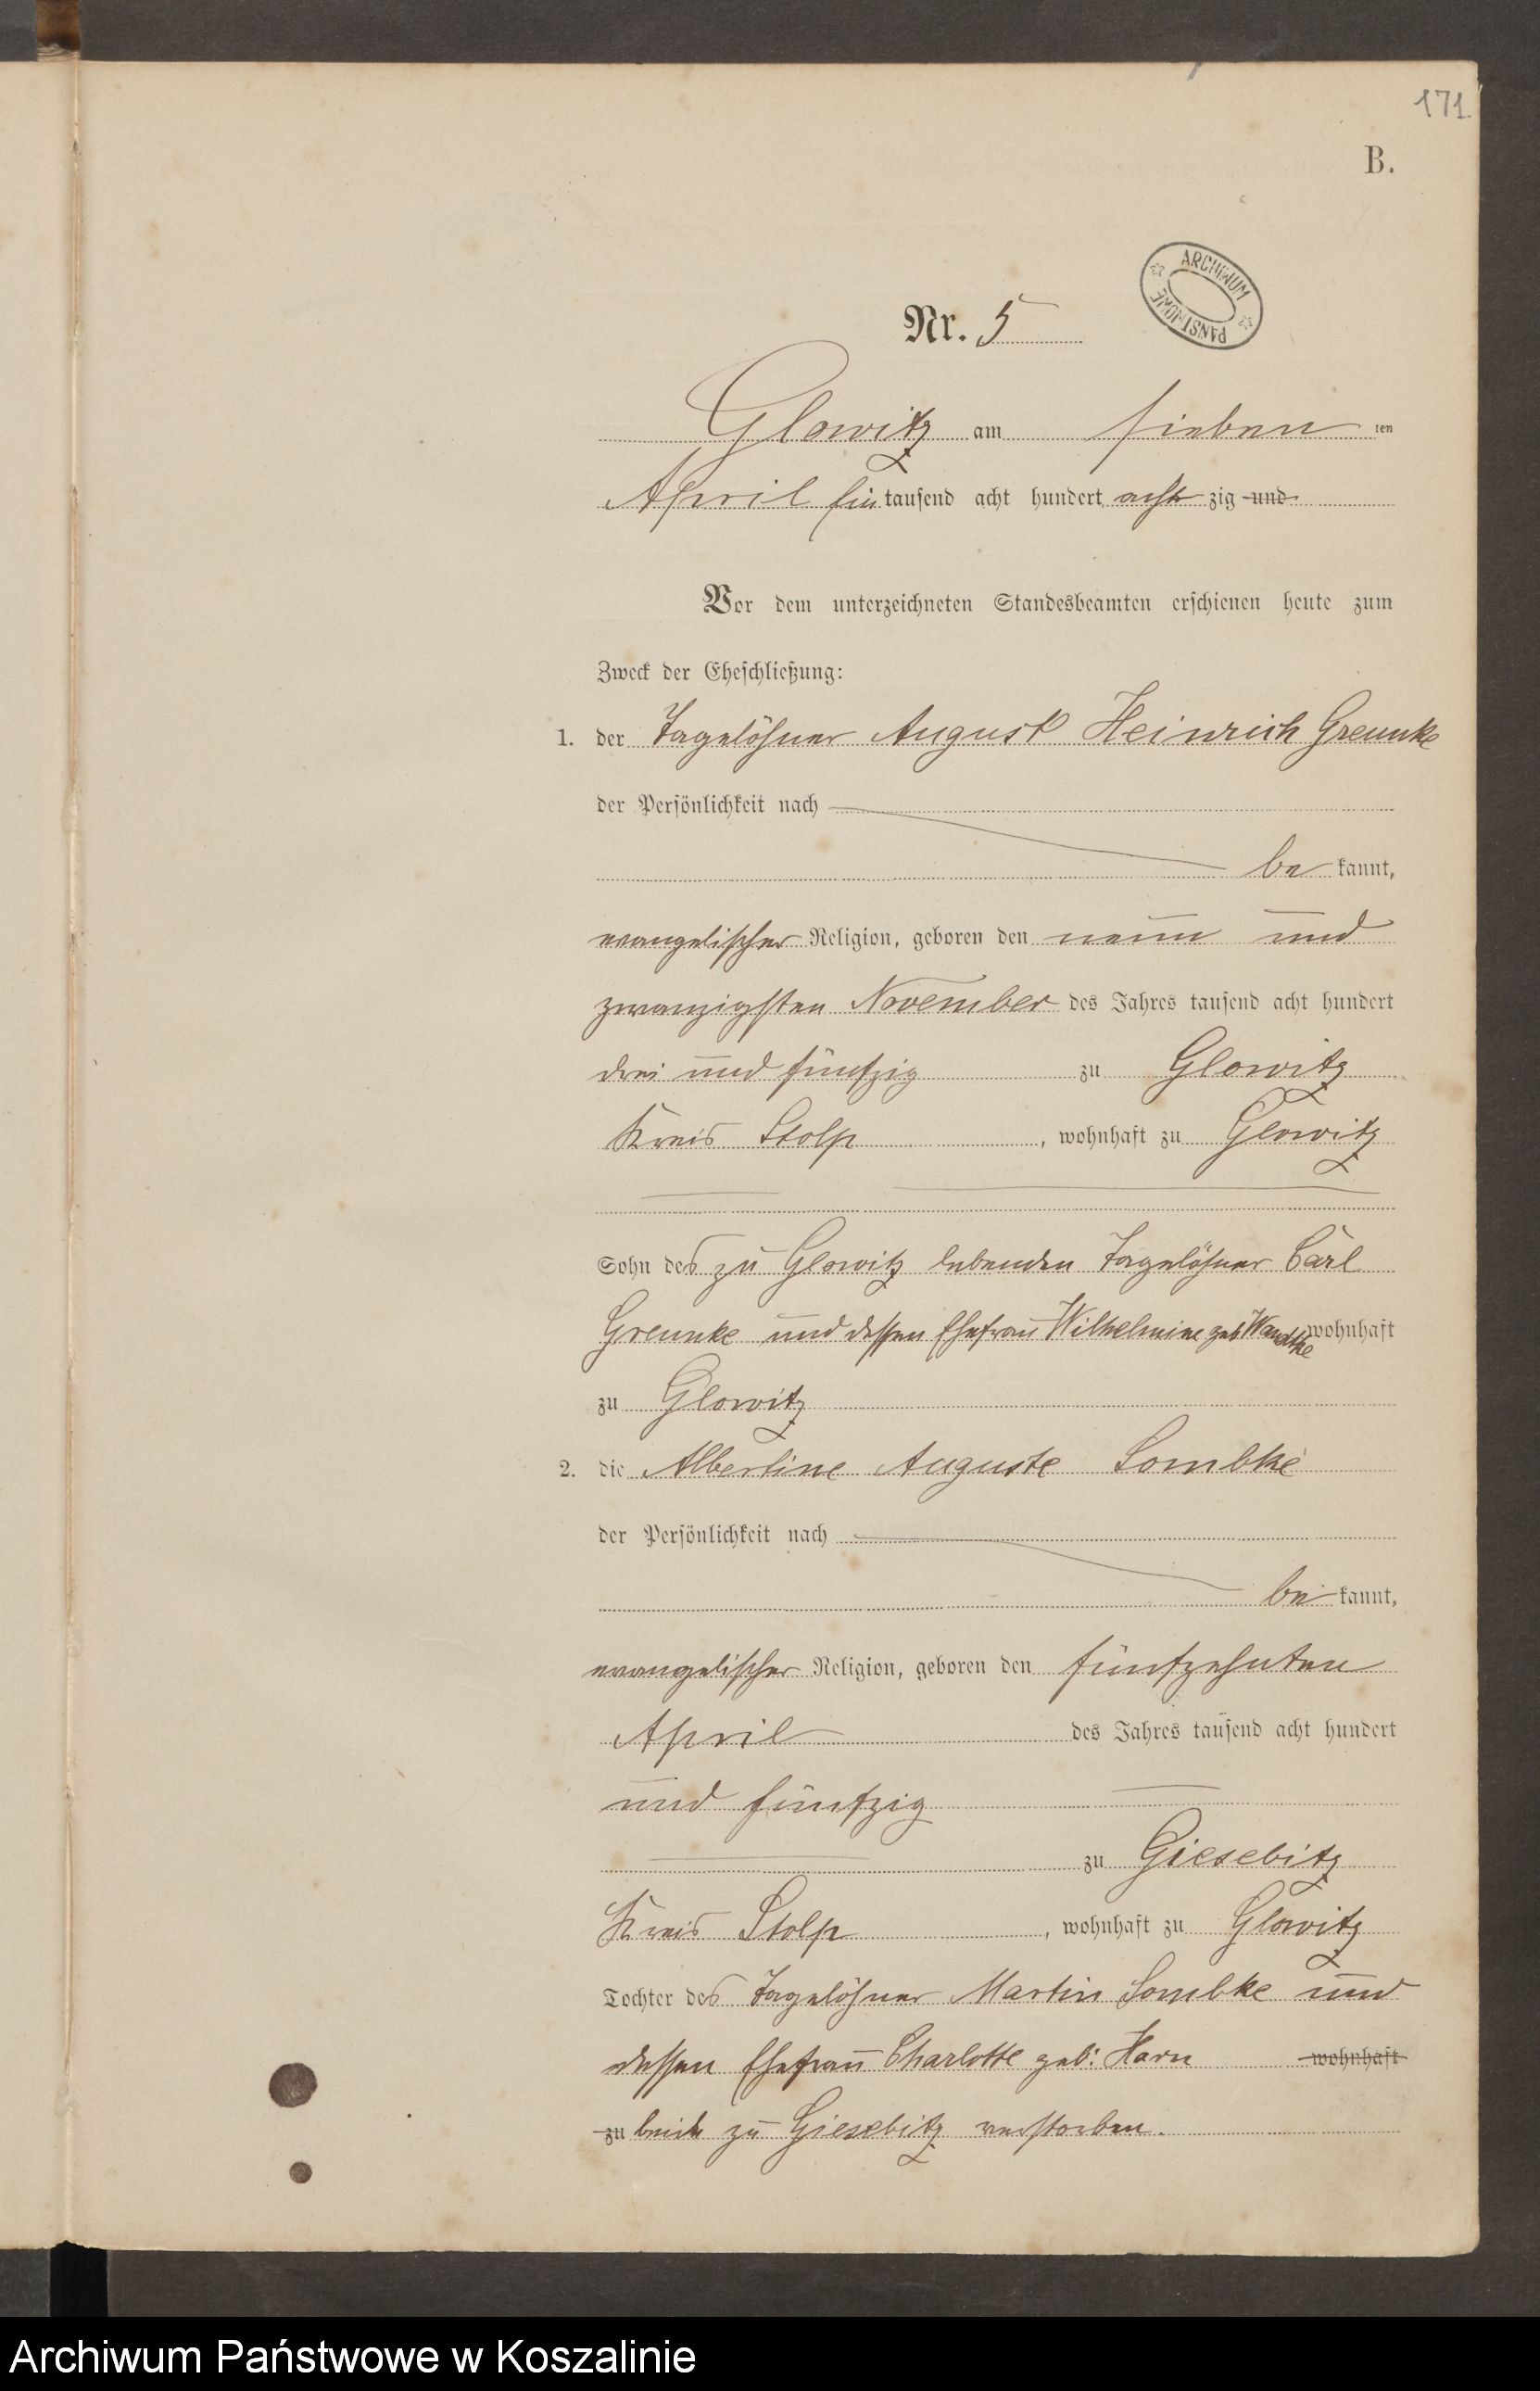 171
B.
ARCHIWUM PAŃSTWOWE
Nr. 5
Glowitz am sieben ten
April ein tausend acht hundert acht zig und
Vor dem unterzeichneten Standesbeamten erschienen heute zum
Zweck der Eheschließung:
1. der Tagelöhner August Heinrich Greunke
der Persönlichkeit nach
be kannt,
evangelischer Religion, geboren den neun und
zwanzigsten November des Jahres tausend acht hundert
drei und fünfzig zu Glowitz
Kreis Stolp, wohnhaft zu Glowitz
Sohn des zu Glowitz lebenden Tagelöhner Carl
Greunke und dessen Ehefrau Wilhelmine geb Wandtke wohnhaft
zu Glowitz
2. die Albertine Auguste Lombke
der Persönlichkeit nach
be kannt,
evangelischer Religion, geboren den fünfzehnten
April des Jahres tausend acht hundert
und fünfzig
zu Giesebitz
Kreis Stolp, wohnhaft zu Glowitz
Tochter des Tagelöhner Martin Lombke und
dessen Ehefrau Charlotte geb: Harn wohnhaft
zu beide zu Giesebitz verstorben.
Archiwum Państwowe w Koszalinie